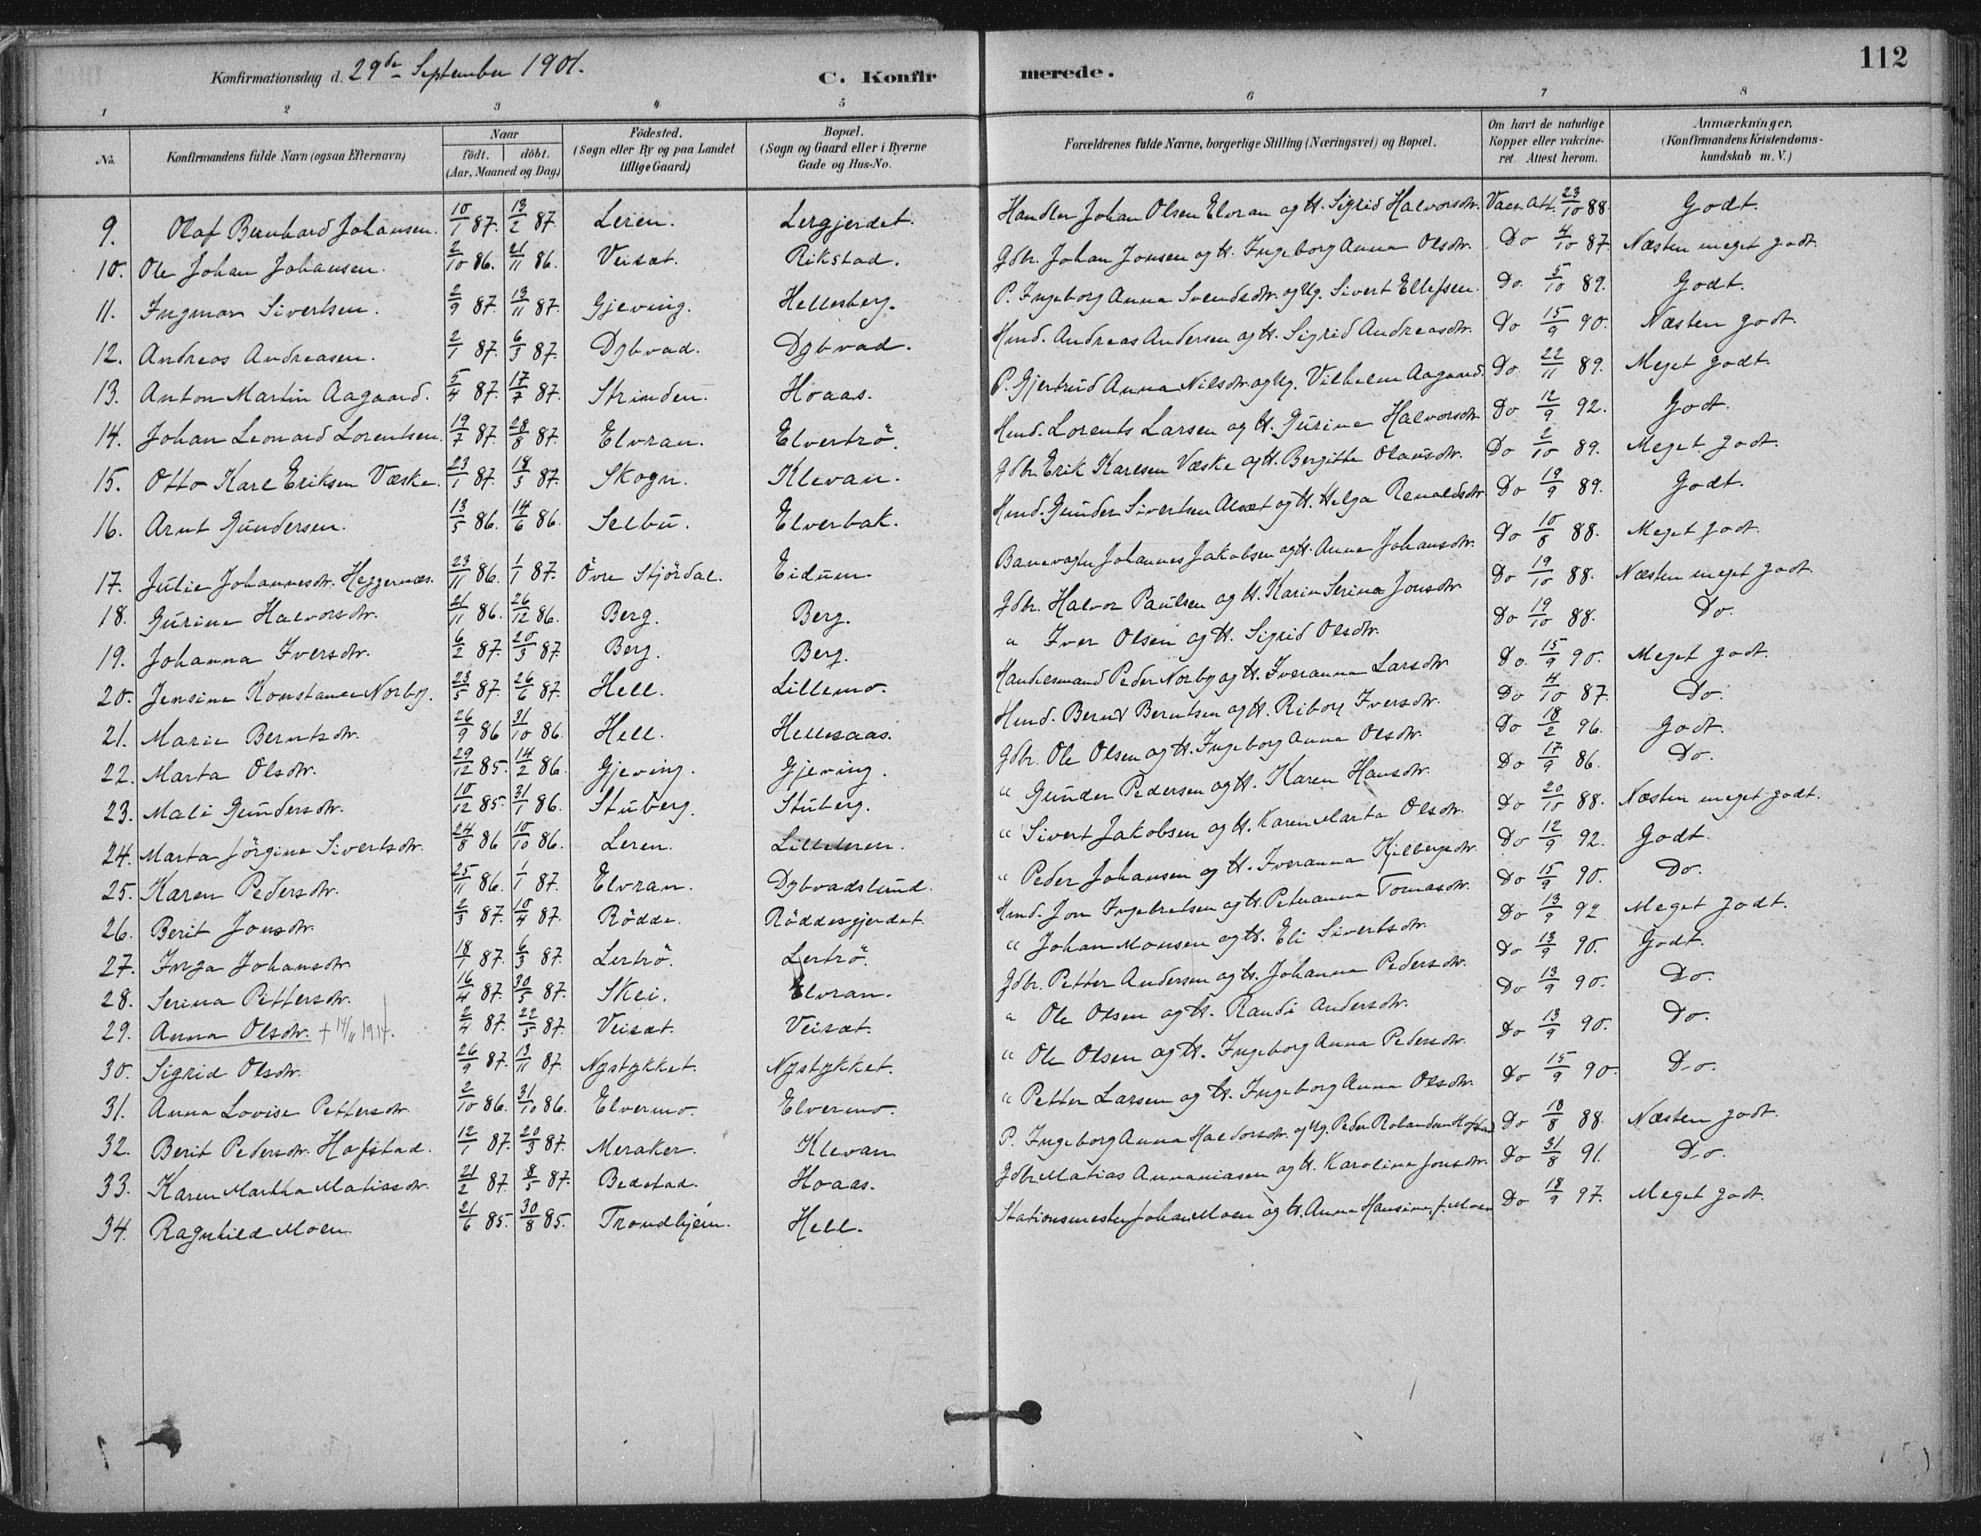 112
Konfirmationsdag d. 29de September 1901.
C. Konfir merede.
1 2 3 4 5 6 7 8
No. Konfirmandens fulde Navn (ogsaa Efternavn) Naar födt. döbt. (Aar, Maaned og Dag) Födested. (Sogn eller By og paa Landet tillige Gaard) Bopæl. (Sogn og Gaard eller i Byerne Gade og Hus-No. Forældrenes fulde Navne, borgerlige Stilling (Næringsvei) og Bopæl. Om havt de naturlige Kopper eller vakcineret. Attest herom. Anmærkninger. (Konfirmandens Kristendomskundskab m. V.)
9. Olaf Bernhard Johansen. 10/1 87. 13/2 87. Leren. Lergjerdet. Handler Johan Olsen Elvran og H. Sigrid Halvorsdtr. Vacc. Att. 23/10 88. Godt.
10. Ole Johan Johansen. 2/10 86. 21/11 86. Veisæt. Rikstad. Gdbr. Johan Jonsen og H. Ingeborg Anna Olsdtr. Do 4/10 87. Næsten meget godt.
11. Ingmar Sivertsen. 2/9 87. 13/11 87. Gjeving. Hellesberg. P. Ingeborg Anna Svendsdtr. og Ug. Sivert Ellefsen. Do. 5/10 89. Godt.
12. Andreas Andreasen. 2/1 87. 6/3 87. Dybvad. Dybvad. Hmd. Andreas Andersen og H. Sigrid Andreasdtr. Do 15/9 90. Næsten godt.
13. Anton Martin Aagaard. 5/4 87. 17/7 87. Strinden. Hoaas. P. Gjertrud Anna Nilsdtr og Ug. Vilhelm Aagaard. Do. 22/11 89. Meget godt.
14. Johan Leonard Lorentsen. 19/7 87. 28/8 87. Elvran. Elvertrö. Hmd. Lorents Larsen og H. Gurine Halvorsdtr. Do 12/9 92. Godt.
15. Otto Karl Eriksen Væske. 23/1 87. 13/3 87. Skogn. Klevan. Gdbr. Erik Karlsen Væske og H. Bergitte Olausdtr. Do 2/10 89. Meget godt.
16. Arnt Gundersen. 13/5 86. 14/6 86. Selbu. Elverbak. Hmd. Gunder Sivertsen Alsæt og H. Helga Renaldsdtr Do 19/9 89. Godt.
17. Julie Johannesdtr. Heggernæs. 23/11 86. 1/1 87. Övre Stjördal. Eidum. Banevogter Johannes Jakobsen og H. Anne Johansdtr. Do 10/8 88. Meget godt.
18. Gurine Halvorsdtr. 21/11 86. 26/12 86. Berg. Berg. Gdbr. Halvor Paulsen og H. Karin Serina Jonsdtr Do 19/10 88. Næsten meget godt.
19. Johanna Iversdtr. 6/2 87. 20/3 87. Berg. Berg. " Iver Olsen og H. Sigrid Olsdtr. Do 19/10 88. Do.
20. Jensine Konstance Norby. 23/5 87. 26/6 87. Hell. Lillemo. Handelsmand Peder Norby og H. Iveranna Larsdtr Do. 15/9 90. Meget godt.
21. Marie Berntsdtr. 26/9 86 31/10 86. Hell. Hellesaas. Hmd. Bernt Berntsen og H. Riborg Iversdtr. Do 4/10 87. Do.
22. Marta Olsdtr. 29/12 85. 14/2 86. Gjeving. Gjeving. Gdbr. Ole Olsen og H. Ingeborg Anna Olsdtr. Do 18/2 96. Godt.
23. Mali Gundersdtr. 10/12 85. 31/1 86. Stuberg. Stuberg. " Gunder Pedersen og H. Karen Hansdtr. Do 17/9 86. Do.
24. Marta Jörgine Sivertsdtr. 24/8 86 10/10 86. Leren. Lilleleren. " Sivert Jakobsen og H. Karen Marta Olsdtr. Do 20/10 88. Næsten meget godt.
25. Karen Pedersdtr. 25/11 86. 1/1 87. Elvran. Dybvadslund. " Peder Johansen og H. Iveranna Kjelbergsdtr. Do 12/9 92. Godt.
26. Berit Jonsdtr. 2/3 87. 10/4 87. Rödde. Röddesgjerdet. Hmd. Jon Ingebretsen og H. Peteranna Tomasdtr. Do 15/9 90. Do.
27. Inga Johansdtr 18/1 87. 6/3 87. Lertrö. Lertrö. " Johan Monsen og H. Eli Sivertsdtr. Do 13/9 92. Meget godt.
28. Serina Pettersdtr. 16/4 87. 30/5 87. Skei. Elvran. Gdbr. Petter Andersen og H. Johanna Pedersdtr. Do 13/9 90. Godt.
29. Anna Olsdtr. + 14/11 1914. 2/4 87. 22/5 87. Veisæt. Veisæt. " Ole Olsen og H. Randi Andersdtr. Do 13/9 90. Do.
30. Sigrid Olsdtr. 26/9 87. 13/11 87. Nystykket. Nystykket. " Ole Olsen og H. Ingeborg Anna Pedersdtr. Do 13/9 90. Do.
31. Anna Lovise Pettersdtr 2/10 86. 31/10 86. Elvermo. Elvermo. " Petter Larsen og H. Ingeborg Anna Olsdtr. Do 15/9 90. Do.
32. Berit Pedersdtr. Hofstad. 12/1 87. 20/3 87. Meraker. Klevan. P. Ingeborg Anna Haldorsdtr. og Ug. Peder Rolandsen Hofstad Do 18/8 88. Næsten godt.
33. Karen Martha Matiasdtr. 21/2 87. 8/5 87. Beistad. Hoaas. Gdbr Matias Annaniasen og H. Karoline Jonsdtr. Do 31/8 91. Do.
34. Ragnhild Moen. 21/6 85. 30/8 85. Trondhjem. Hell. Stationsmester Johan Moen og H. Anna Hansine f. Moen Do 18/9 97. Meget godt.